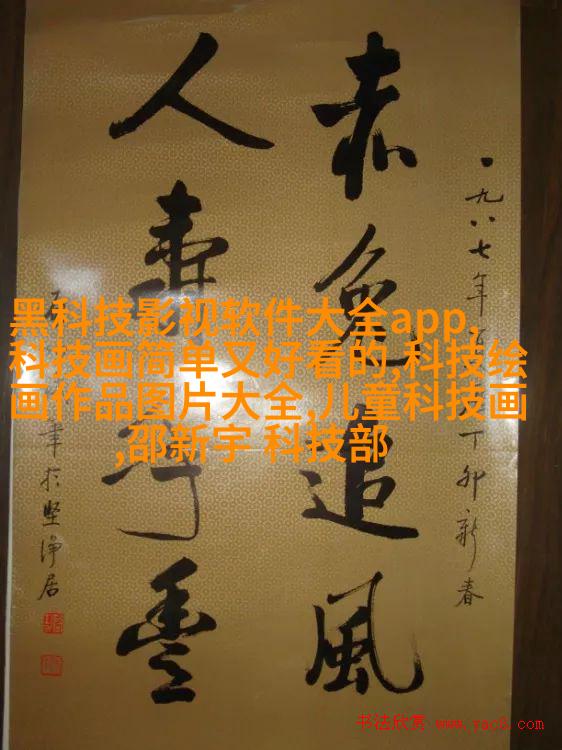 一九八七年 丁卯新春
赤兔追風
人壽年豐
筆於堅淨居
黑科技影视软件大全app,
科技画简单又好看的,科技绘
画作品图片大全,儿童科技画
,邵新宇 科技部
书法欣赏 www.yac8.com